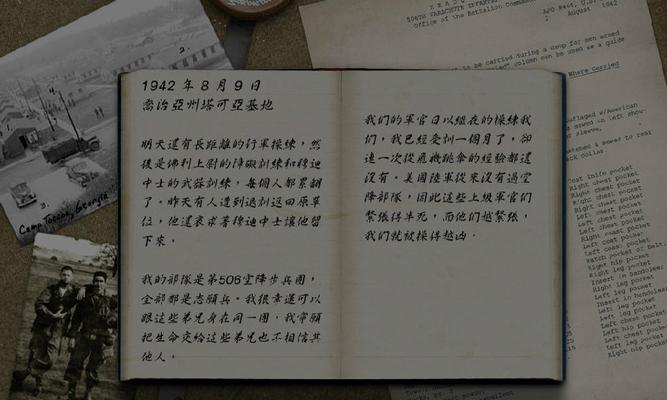 1942 年 8 月 9 日
喬治亞州塔可亞基地
明天還有長距離的行軍操練，然
後是佛利上尉的障礙訓練和穆迪
中士的武器訓練，每個人都累翻
了。昨天有人遭到退訓送回原單
位，他還哀求著穆迪中士讓他留
下來。
我的部隊是第506空降步兵團，
全部都是志願兵。我很幸運可以
跟這些弟兄身在同一團，我寧願
把生命交給這些弟兄也不相信其
他人。
我們的軍官日以繼夜的操練我
們，我已經受訓一個月了，卻
連一次從飛機跳傘的經驗都還
沒有。美國陸軍從來沒有過空
降部隊，因此這些上級軍官們
緊張得半死，而他們越緊張，
我們就被操得越凶。
2.
3.
Camp Toccoa, Georgia
506TH PARACHUTE INFANTRY
Office of the Battalion Comma
APO #441, U.S.
August 1942
to be carried during a drop for men armed
column can be used as a guide
Where Carried
Right chest pocket
Right chest pocket
Left chest pocket
Left chest pocket
Right hip pocket
Right leg pocket
Left leg pocket
Left chest pocket
Left hip pocket
Left chest pocket
Left leg pocket
Right hip pocket